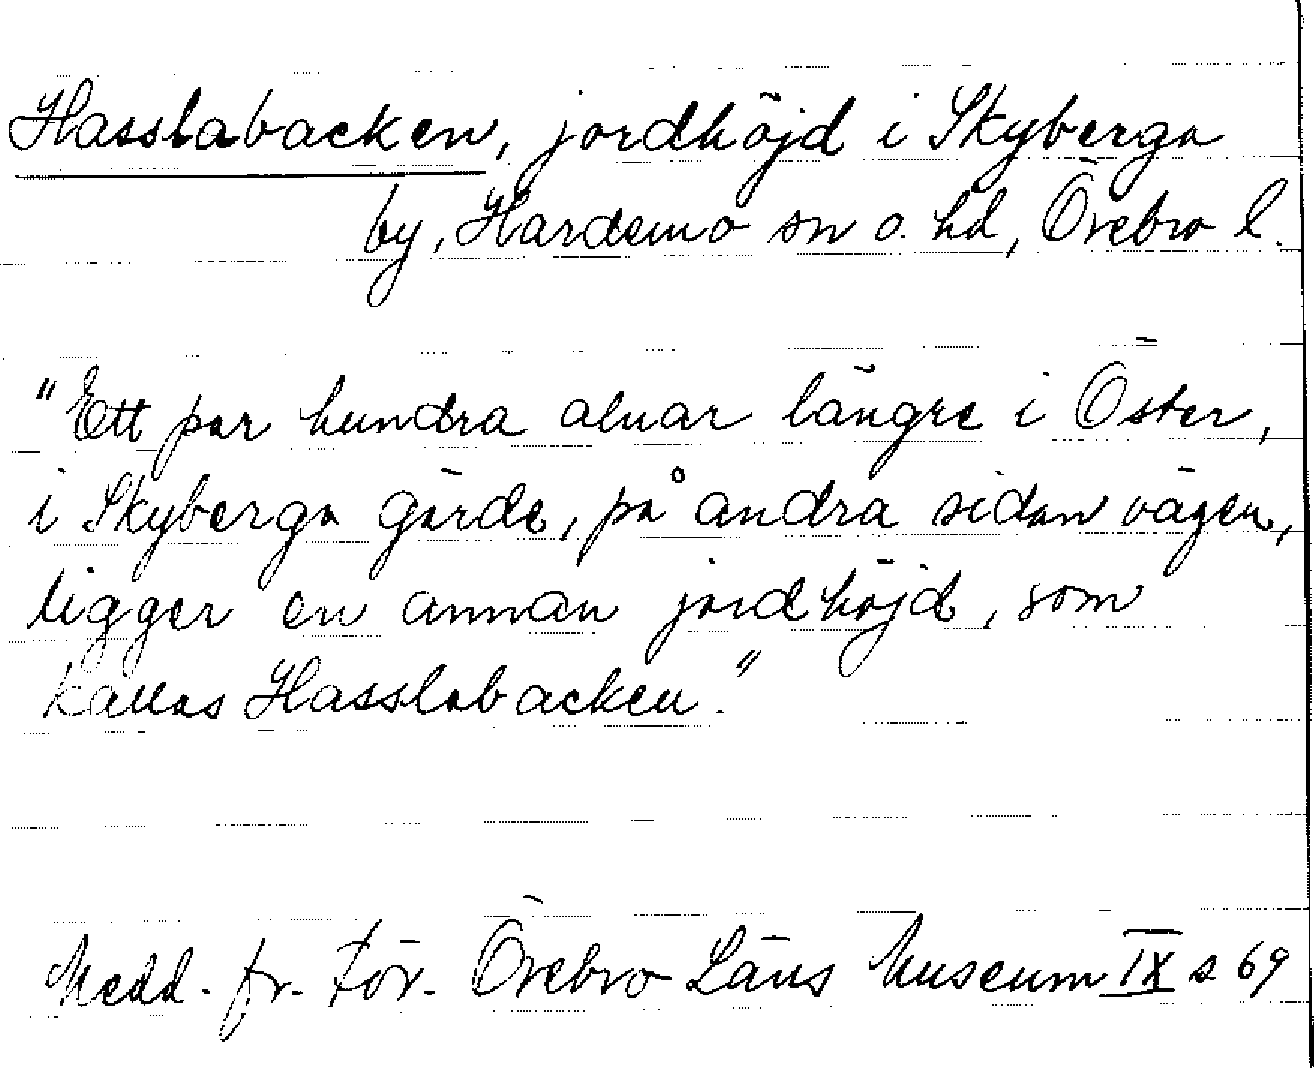 Hasslabacken, jordhöjd i Skyberga
by, Hardemo sn o. hd, Örebro l.
"Ett par hundra alnar längre i Öster,
i Skyberga gärde, på andra sidan vägen,
ligger en annan jordhöjd, som
kallas Hasslabacken."
Medd. fr. För. Örebro Läns Museum IX s 69